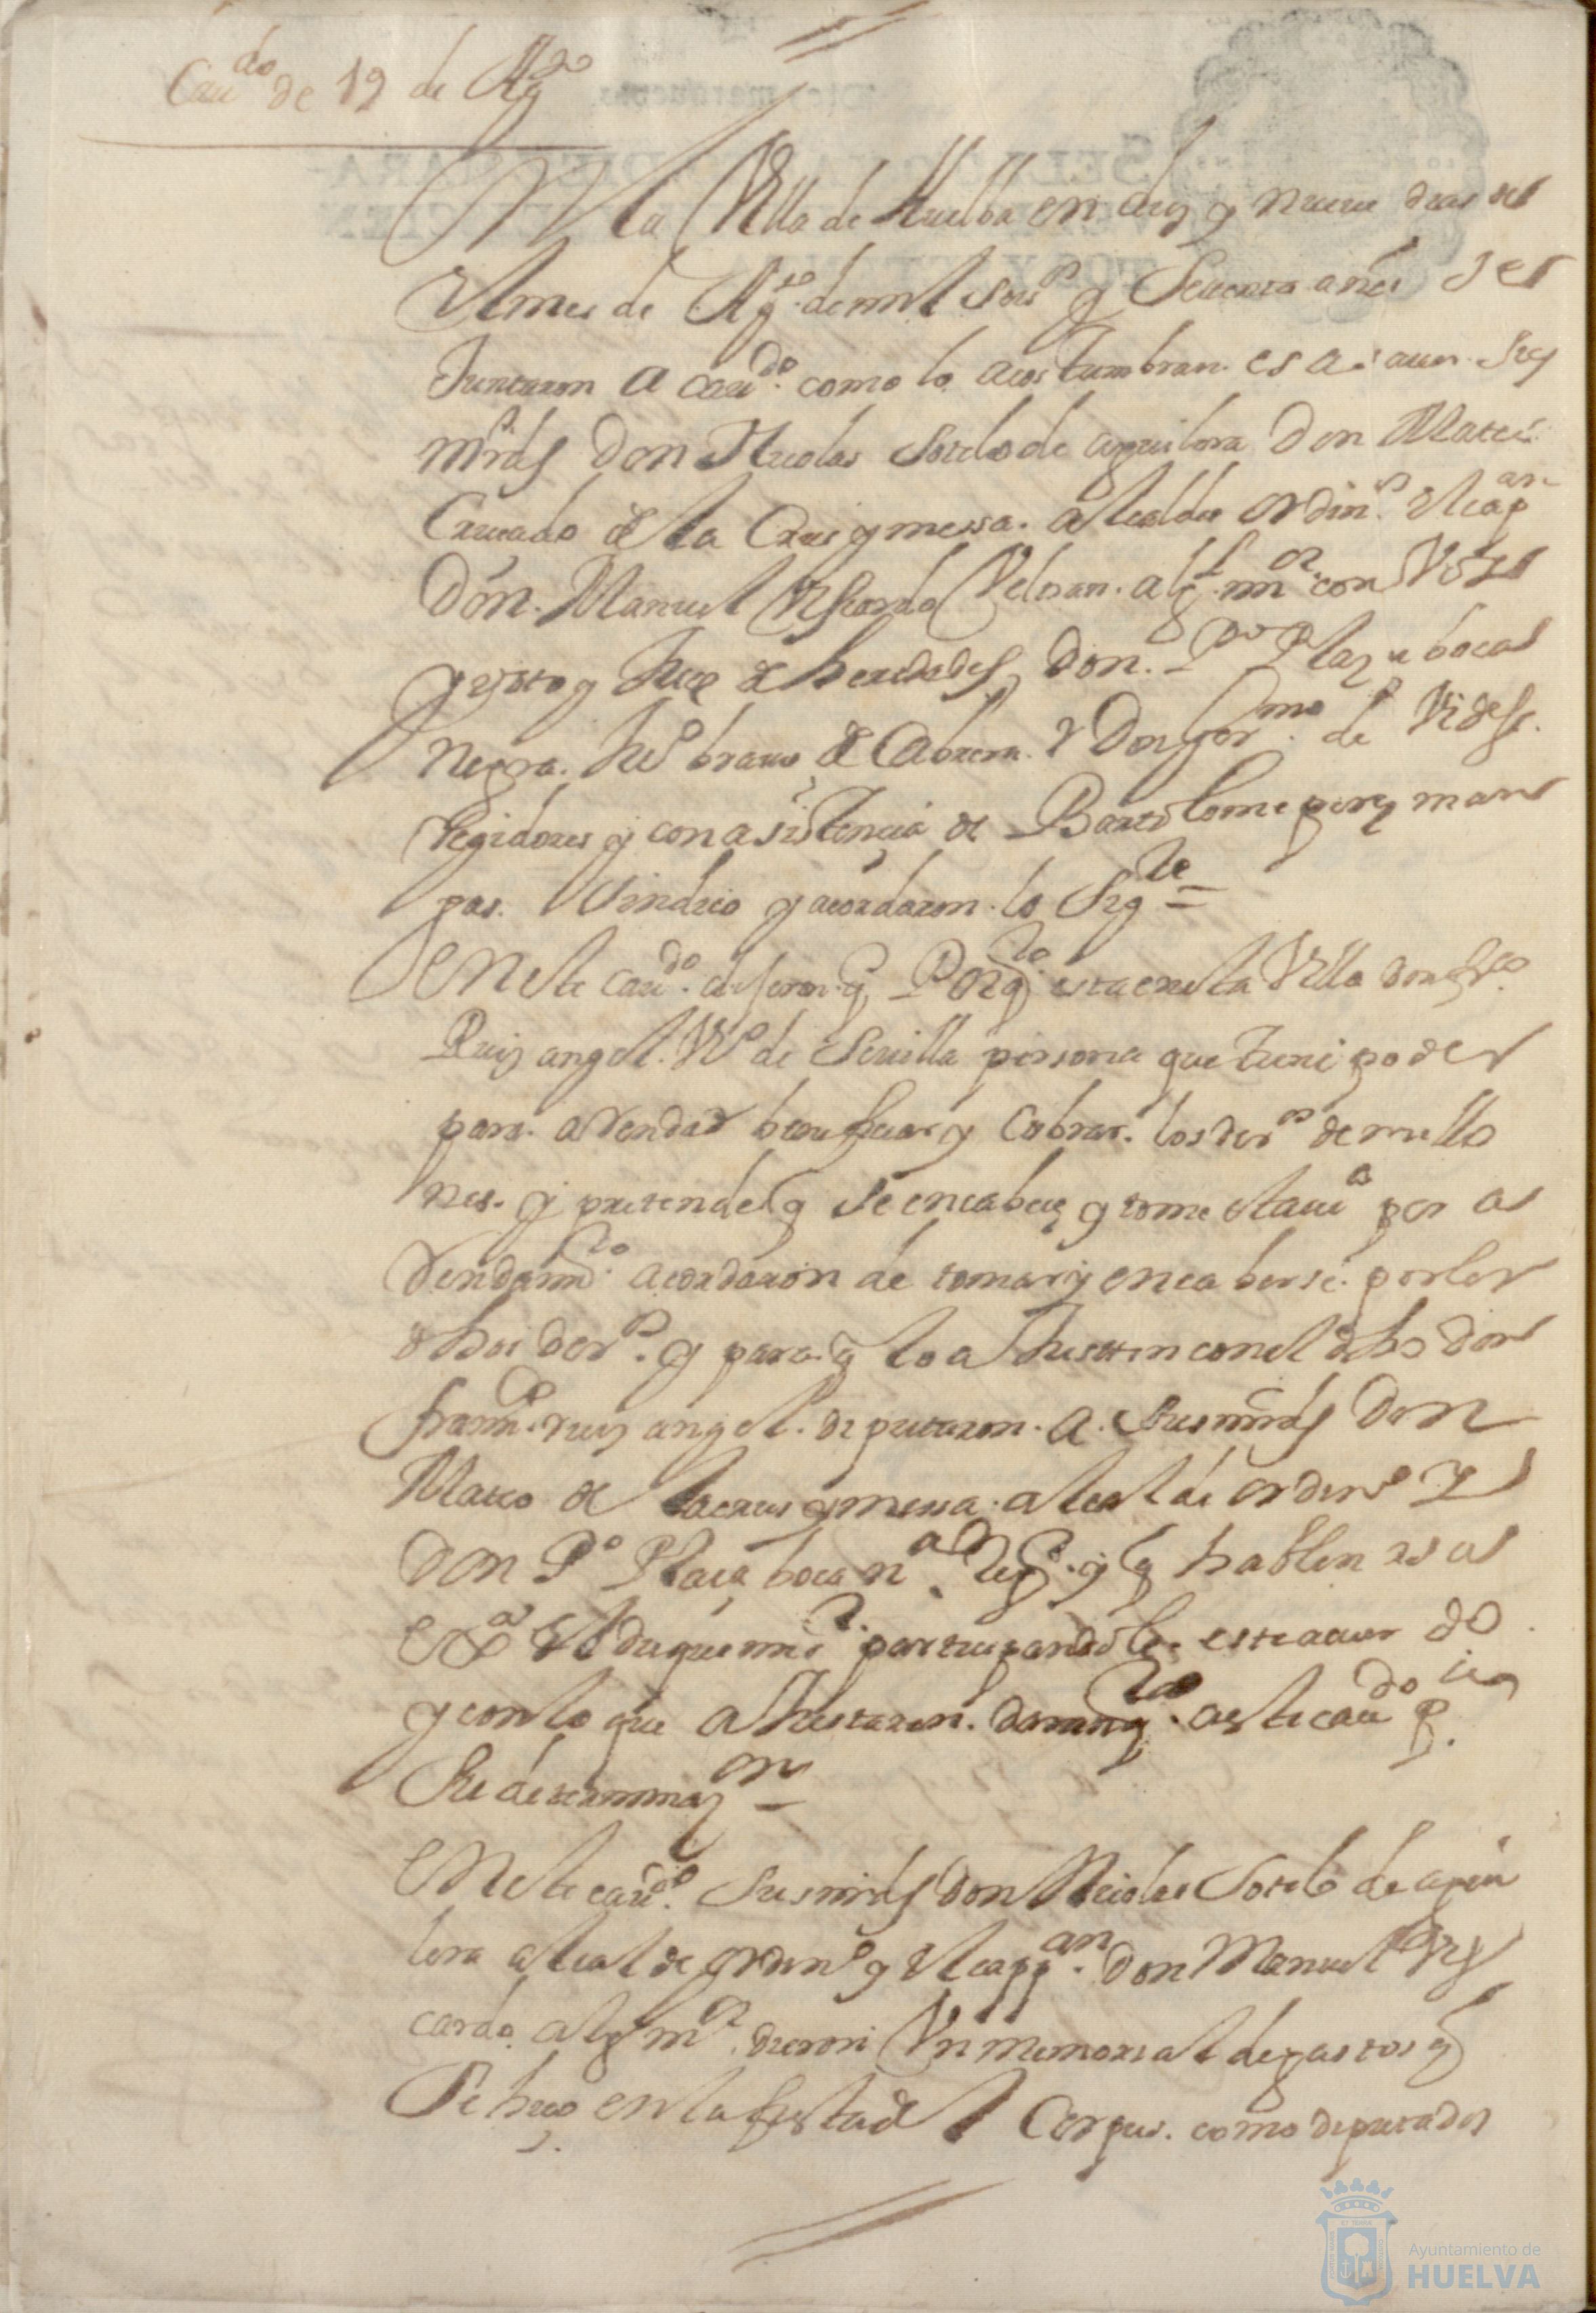 Cau.do de 19 de Ag.to
En la Villa de Huelba en diez y nueue dias del
el mes de Ag.to de mill seis.s y setenta años se
Juntaron a cau.do como lo acostumbran es a sauer sus
mrds Don Nicolas Sotelo de aguilera Don Mateo
Cruzado de la Crus y messa alcaldes ordin.s el cap.an
Don Manuel Viscardo Beltran alg.l m.or con Vos
y voto y Juez de heredades, Don P.o Blaz boca
negra. bravo de Cabrera. y Don Ger.mo de
Regidores y con asistencia de Bartolome perez man
pas. sindico y acordaron lo sig.te
En este cau.do dijeron q Por q.to esta en esta Villa don fr.co
Ruiz angel V.o de Seuilla persona que tiene poder
para arendar beneficiar y cobrar los der.os de millo
nes. y pretende q se encabeze y tome esta ui.a por a
rendam.to acordaron de tomar y encabesarse por los
dhos der.s y para q lo aJusten con el dho don
fran.co ruiz angel deputaron a sus mrds Don
Mateo de la crus y messa alcalde ordin.o y
Don P.o Blaz boca n.a reg.or y q hablen a su
Ex.a el duque mi s.r partisipandole este acuerdo
y con lo que aJustaren daran q.ta a este cau.do p.a
su determinaz.on
En este cau.do sus mrds don Nicolas Sotelo de agui
lera alcalde ordin.o y el capp.an don Manuel Vis
cardo alg.l m.or dieron Vn memorial de gastos q
se hizo en la fiesta del Corpus. como diputados
Ayuntamiento de
HUELVA